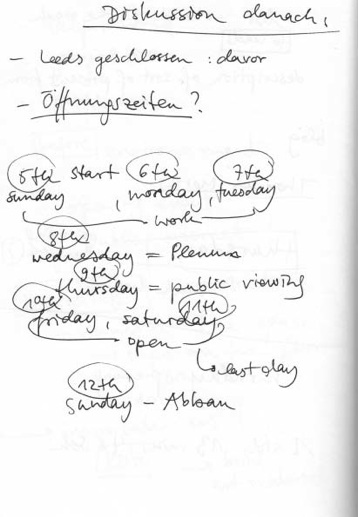 Diskussion danach,
- Leeds geschlossen : davor
- Öffnungszeiten ?
5th start 6th 7th
sunday , monday, tuesday
work
8th
wednesday = Plenum
9th
thursday = public viewing
10th 11th
friday, saturday,
open
last day
12th
sunday - Abbau